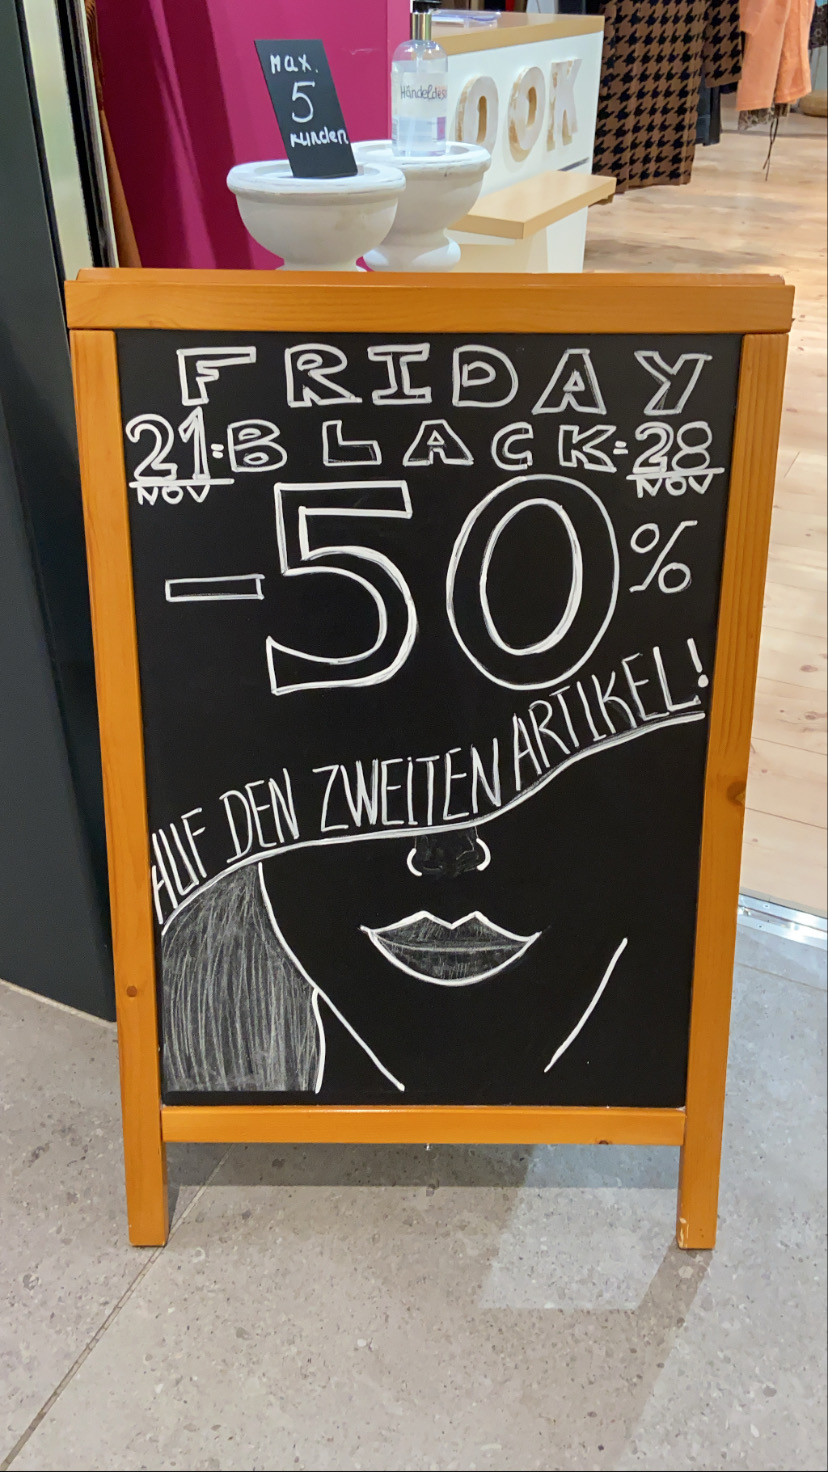 Max.
5
Kunden
Händedes
OOK
FRIDAY
21. BLACK 28
NOV NOV
-50%
AUF DEN ZWEITEN ARTIKEL!